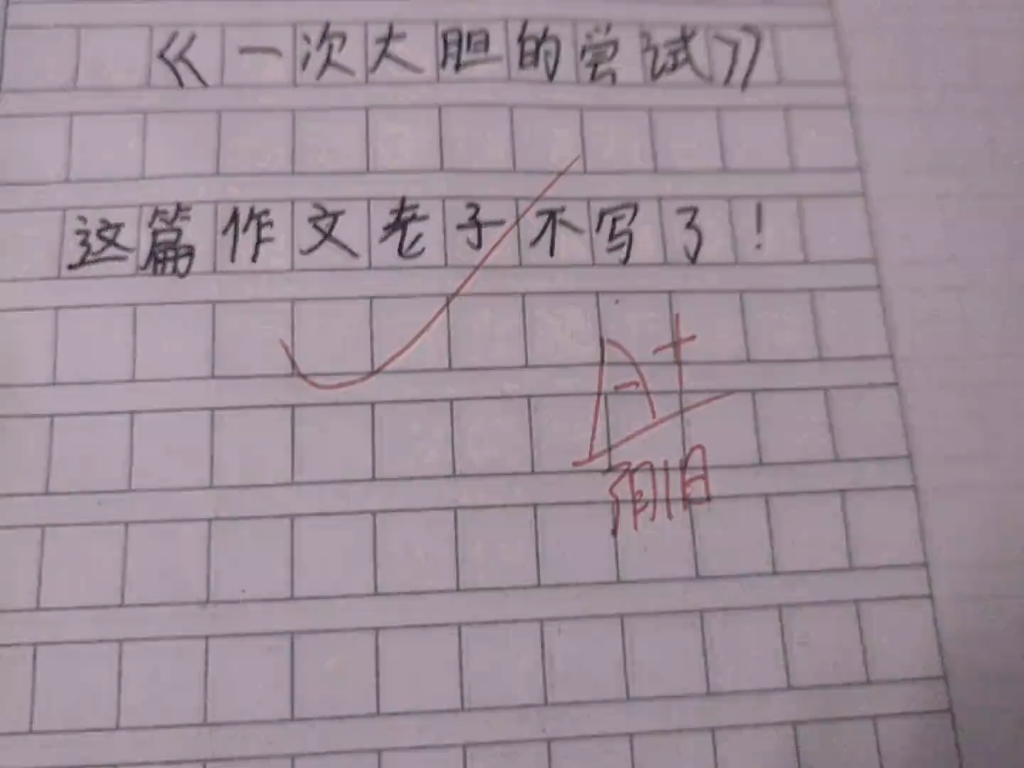 《一次大胆的尝试》
这篇作文老子不写了！
A+